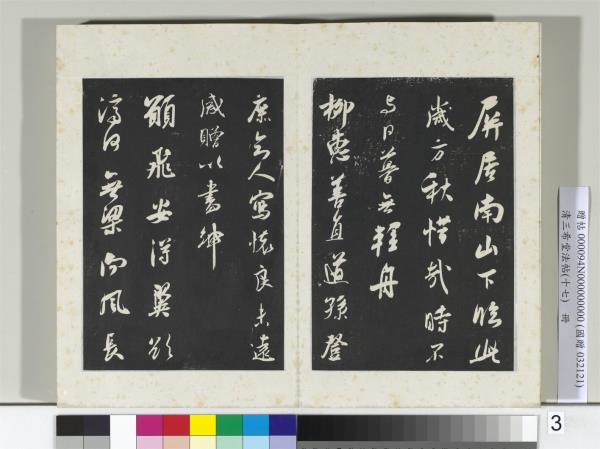 屏居南山下臨此
歲方秋惜哉時不
与日暮無輕舟
柳惠善直道孫登
庶知人寫懷良未遠
感贈以書紳
願飛安得翼欲
濟河無梁向風長
贈帖 000094N000000000 (國贈 032121)
清三希堂法帖(十七) 冊
3